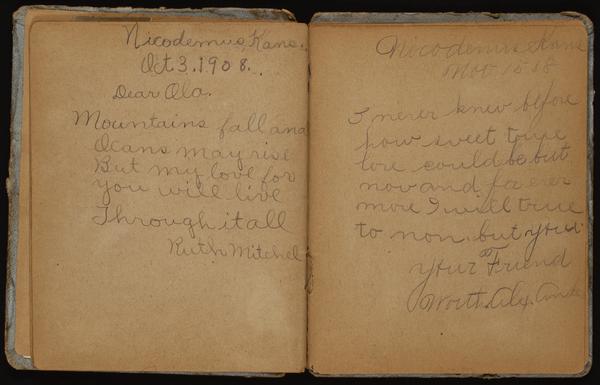 Nicodemus Kans.
Oct 3. 1908.
Dear Ola.
Mountains fall and
Oceans may rise
But my love for
you will live
Through it all
Ruth Mitchel
Nicodemus Kans
Nov 15
I never knew before
how sweet true
love could be but
now and for ever
more I will true
to non. but you.
your Friend
Worth.